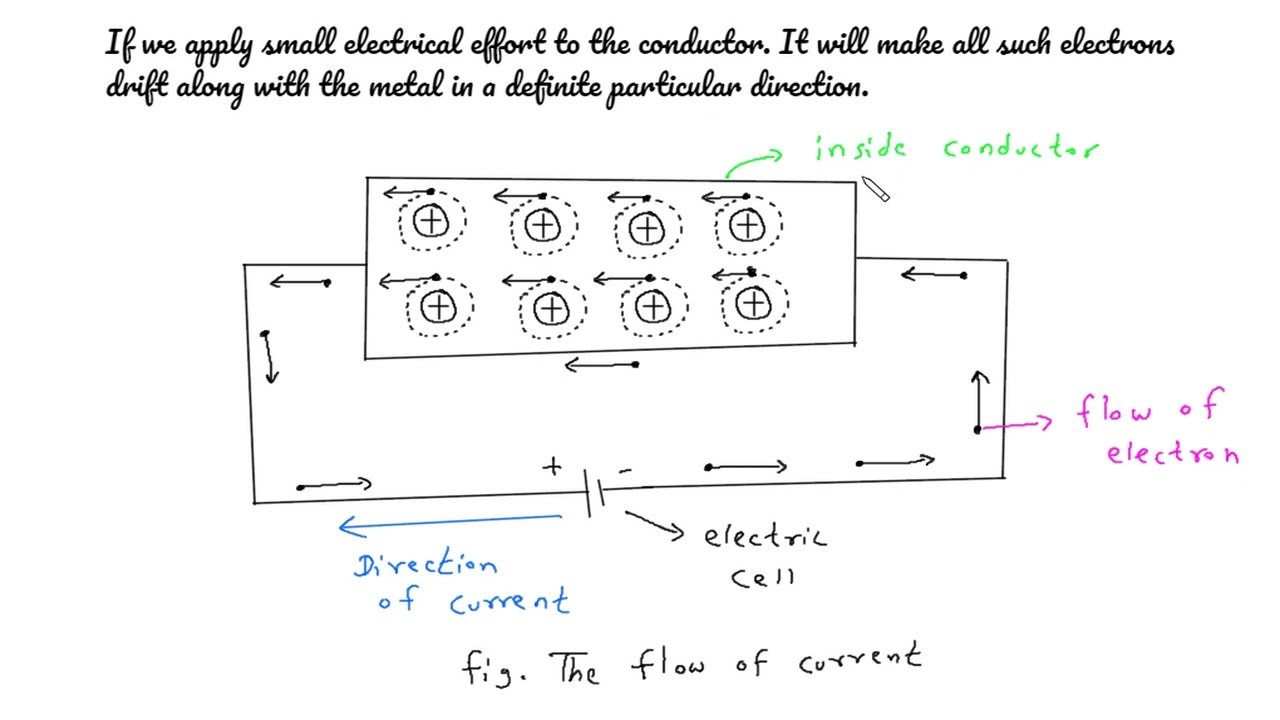 If we apply small electrical effort to the conductor. It will make all such electrons
drift along with the metal in a definite particular direction.
inside conductor
+ + + +
+ + + +
flow of
electron
+ -
electric
cell
Direction
of current
fig. The flow of current